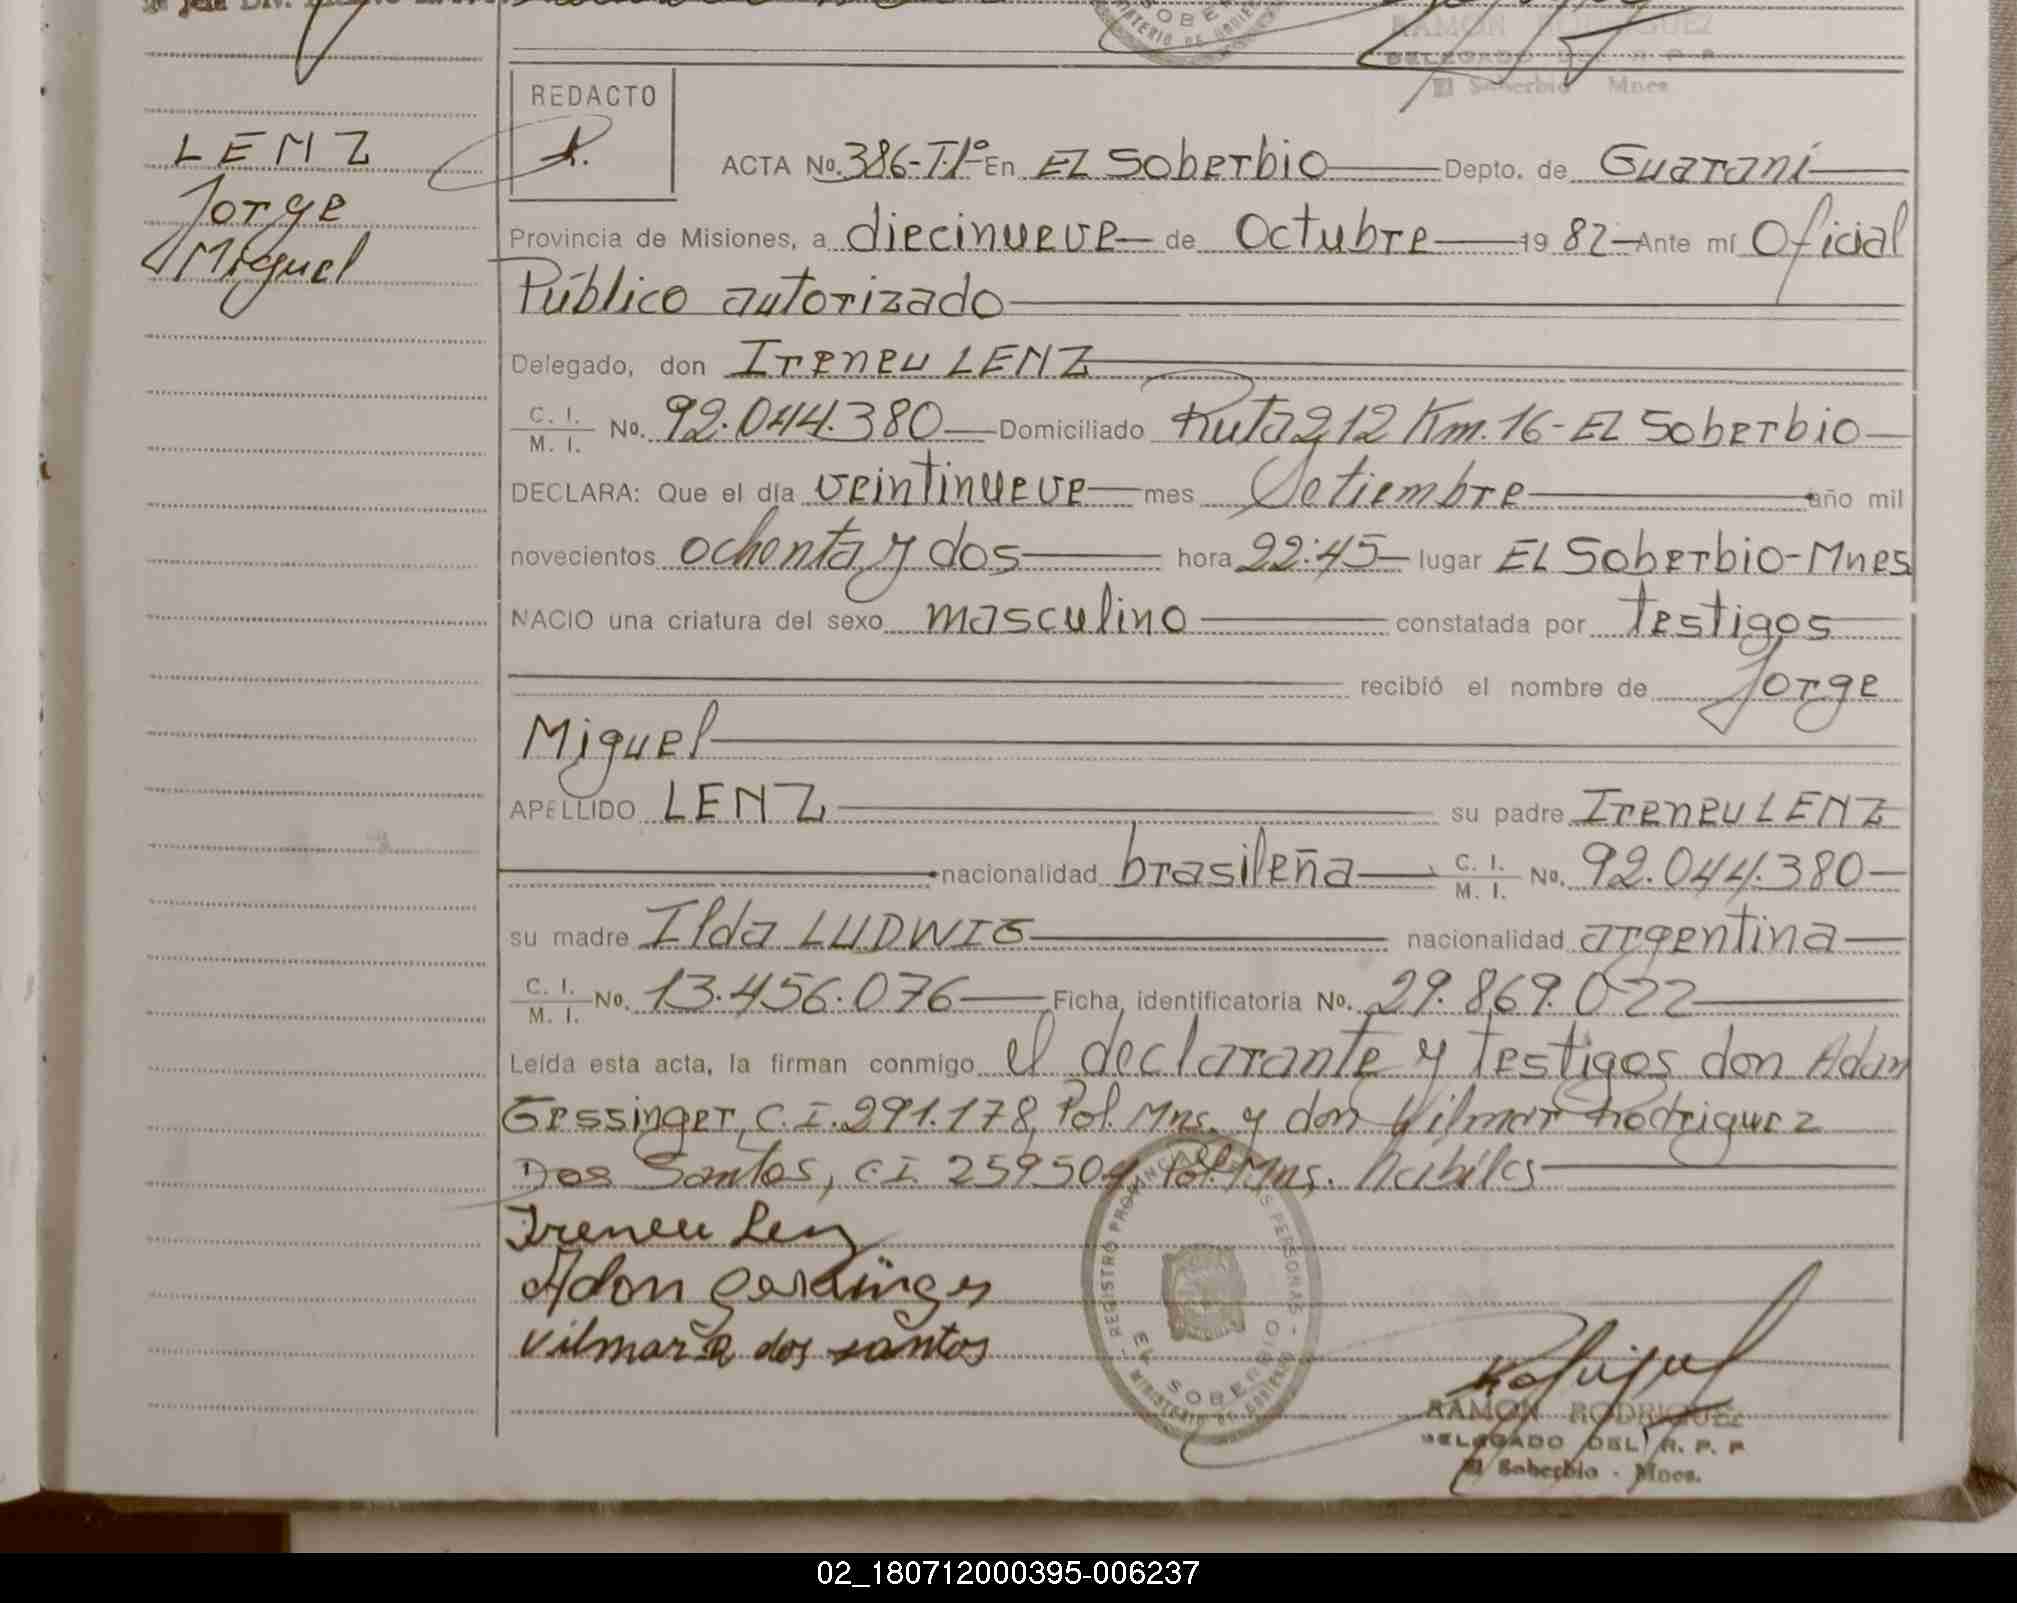 RAMON RODRIGUEZ
DELEGADO DEL R. P. P.
El Soberbio Mnes
LENZ
Jorge
Miguel
REDACTO
ACTA No. 386-T.1º En EL Soberbio Depto. de Guaraní
Provincia de Misiones, a diecinueve de Octubre 19 82 Ante mí Oficial
Público autorizado
Delegado, don Ireneu LENZ
C. I. / M. I. No. 92.044.380 Domiciliado Ruta 212 Km. 16 - EL Soberbio
DECLARA: Que el día veintinueve mes Setiembre año mil
novecientos ochenta y dos hora 22:45 lugar EL Soberbio-Mnes
NACIO una criatura del sexo masculino constatada por testigos
recibió el nombre de Jorge
Miguel
APELLIDO LENZ su padre Ireneu LENZ
nacionalidad brasileña C. I. / M. I. No. 92.044.380
su madre Ilda LUDWIG nacionalidad argentina
C. I. / M. I. No. 13.456.076 Ficha identificatoria No. 29.869.022
Leída esta acta, la firman conmigo el declarante y testigos don Adan
Gessinger, C.I. 291.178, Pol. Mns. y don Vilmar Rodriguez
Dos Santos, C.I. 259504 Pol. Mns. habiles
Ireneu Lenz
Adon Gessinger
Vilmar R dos santos
REGISTRO PROVINCIAL DE LAS PERSONAS
EL SOBERBIO
MINISTERIO DE GOBIERNO
RAMON RODRIGUEZ
DELEGADO DEL R. P. P.
El Soberbio - Mnes.
02_180712000395-006237